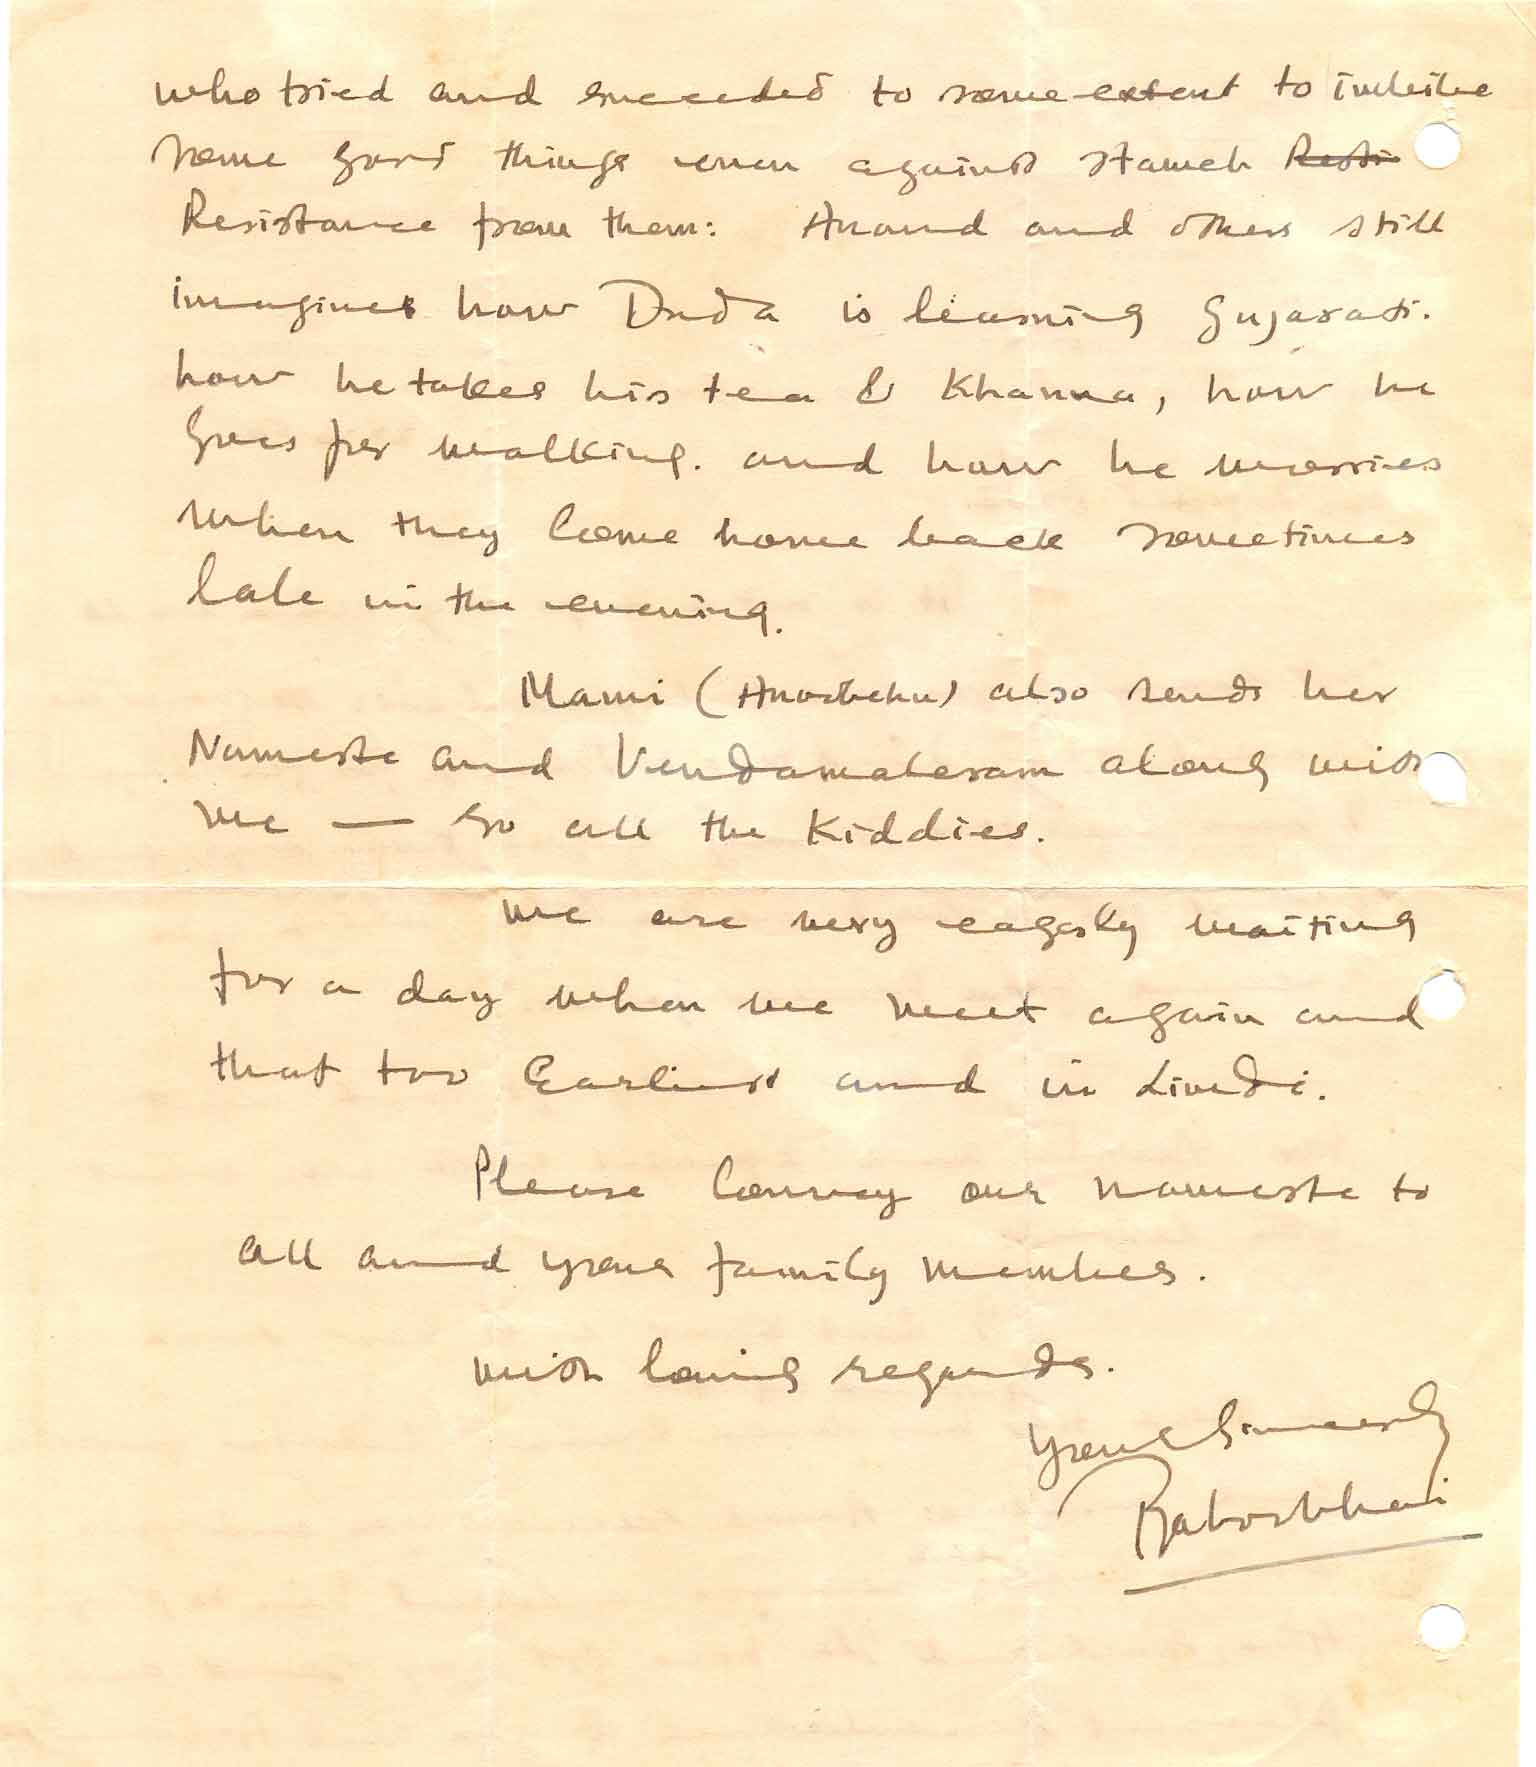 who tried and succeeded to some extent to imbibe
some good things even against staunch Resti
Resistance from them: Anand and others still
imagines how Dada is learning Gujarati.
how he takes his tea & Khanna, how he
Goes for walking. and how he worries
when they Come home back sometimes
late in the evening.
Mami ( also sends her
Namaste and Vendamateram along with
me — so all the Kiddies.
we are very eagerly waiting
for a day when we meet again and
that too Earliest and in Limdi.
Please Convey our namaste to
all and your family members.
with loving regards.
Yours Sincerely